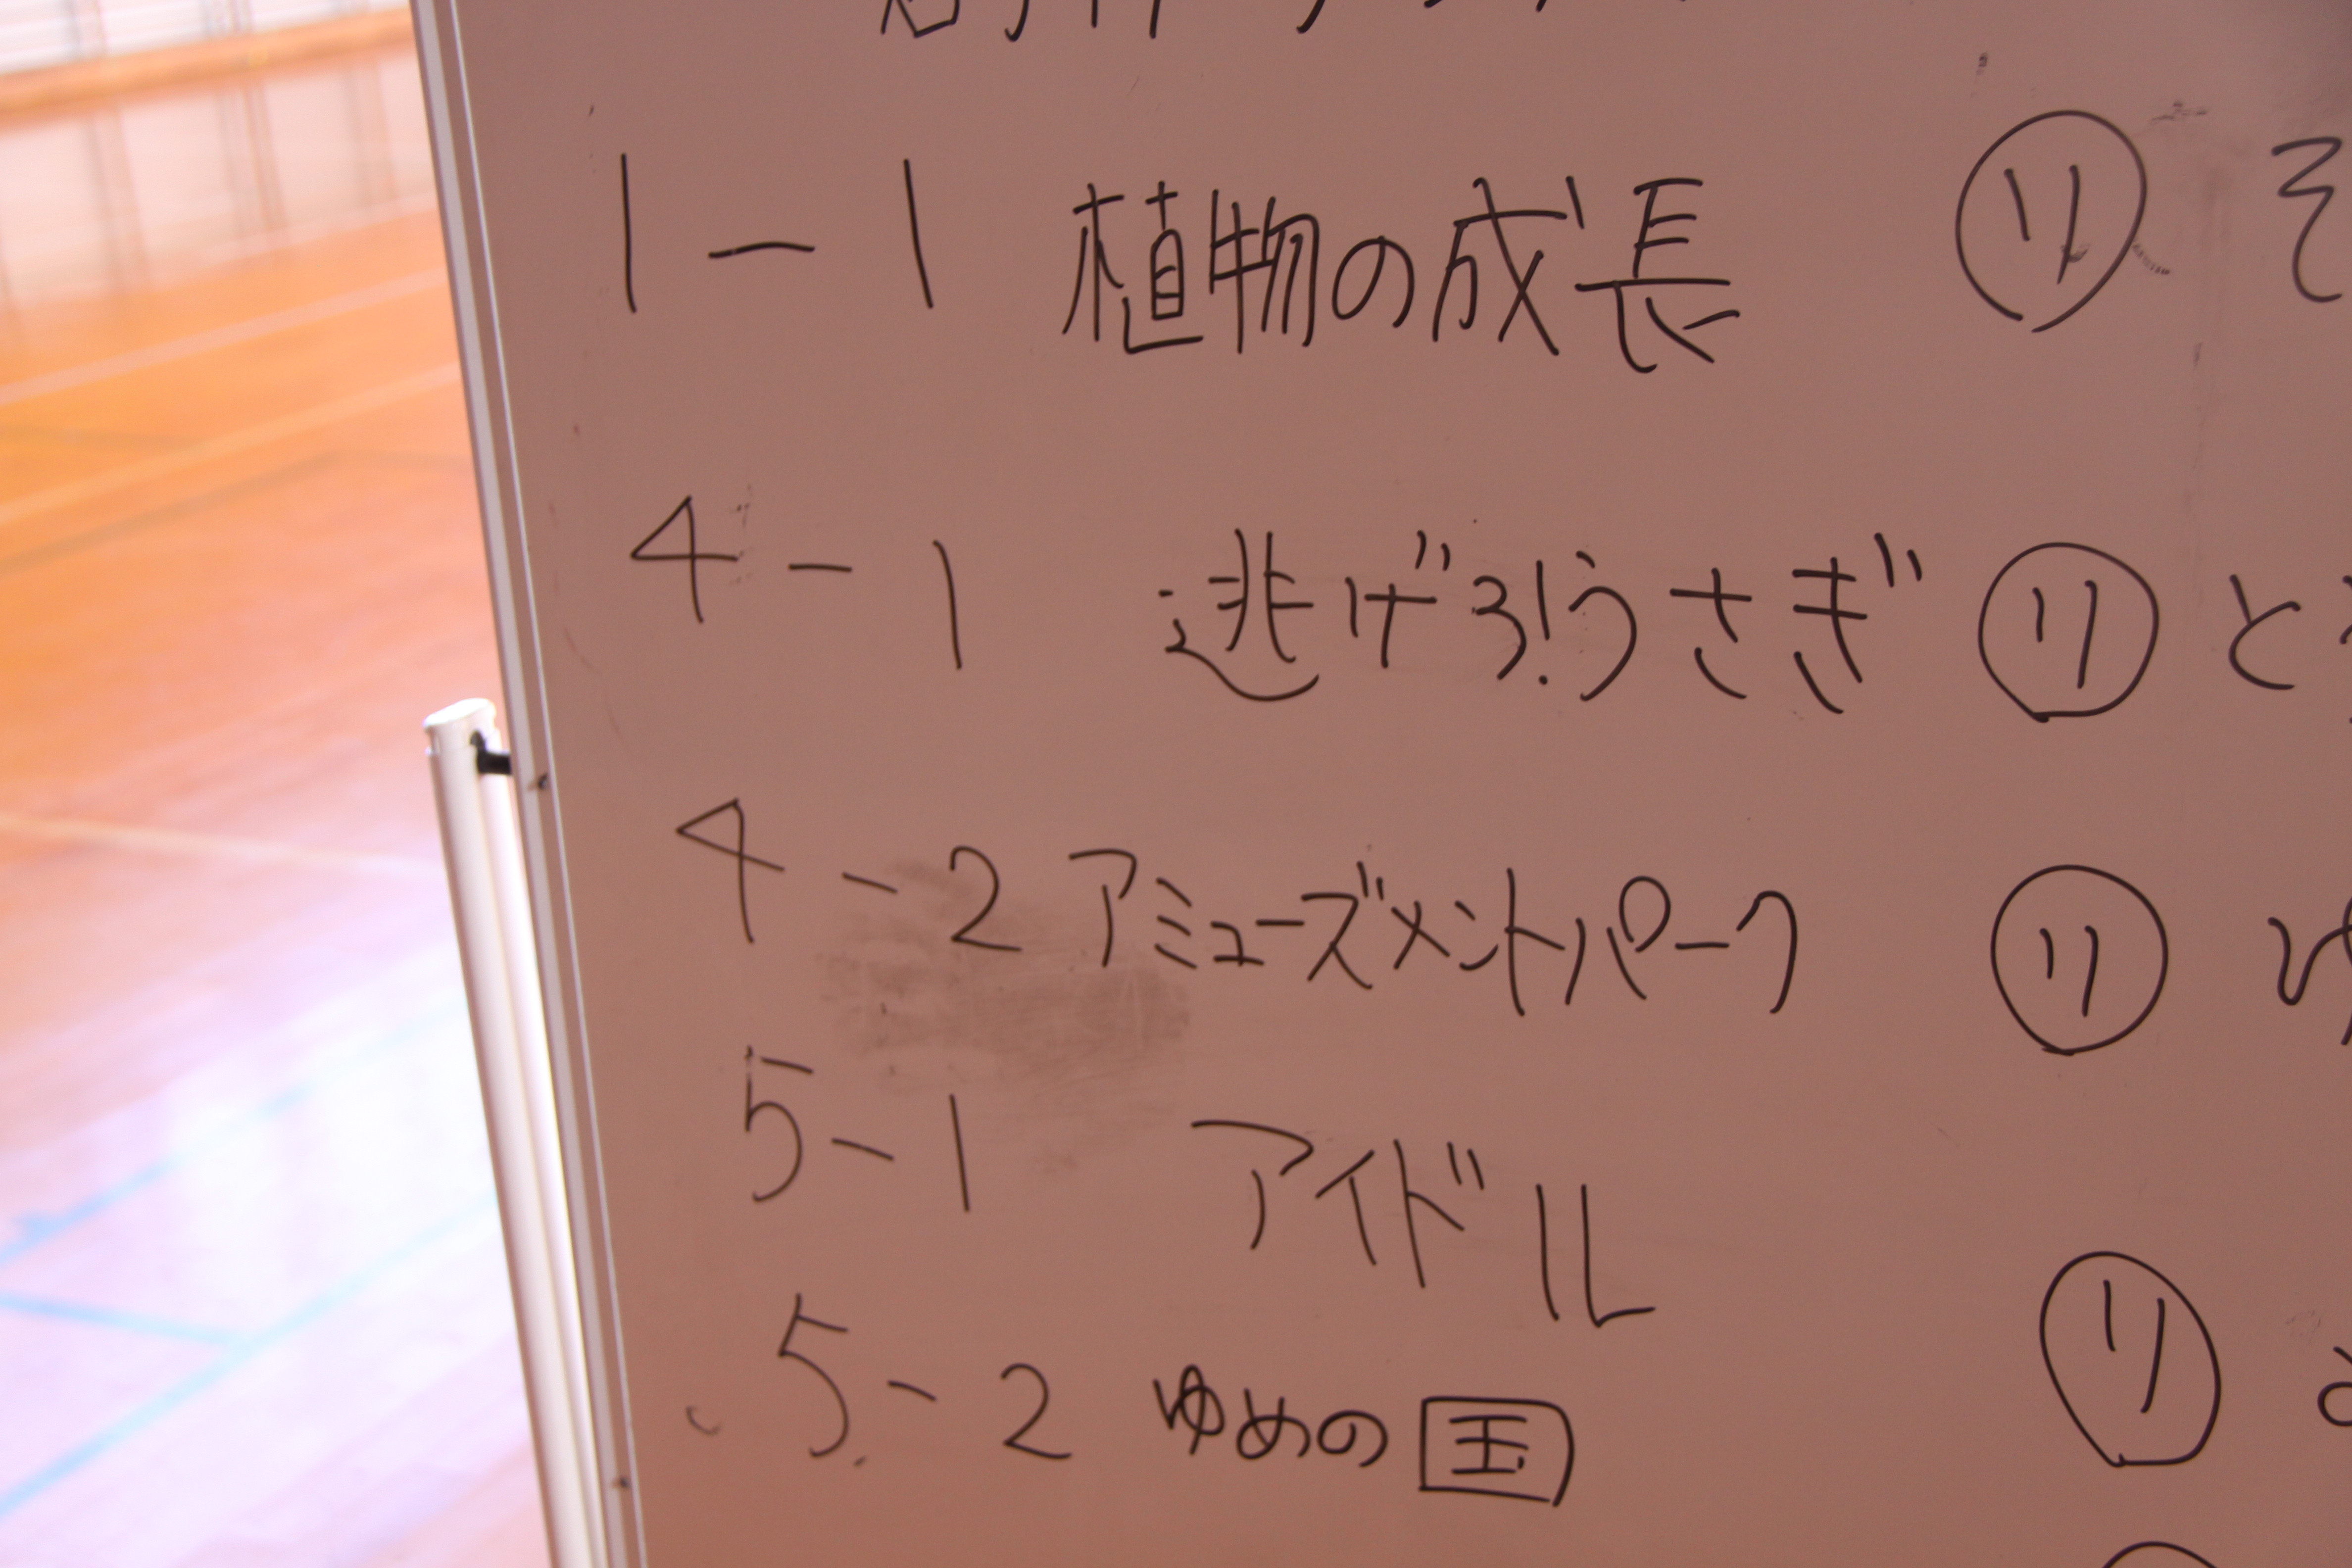 1－1 植物の成長 ㋷ そ
4－1 逃げろ!うさぎ ㋷ と
4－2 アミューズメントパーク ㋷
5－1 アイドル
5－2 ゆめの国 ㋷